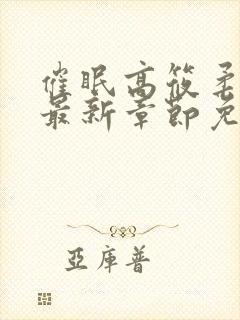 催眠高筱柔
最新章節免
亞庫普